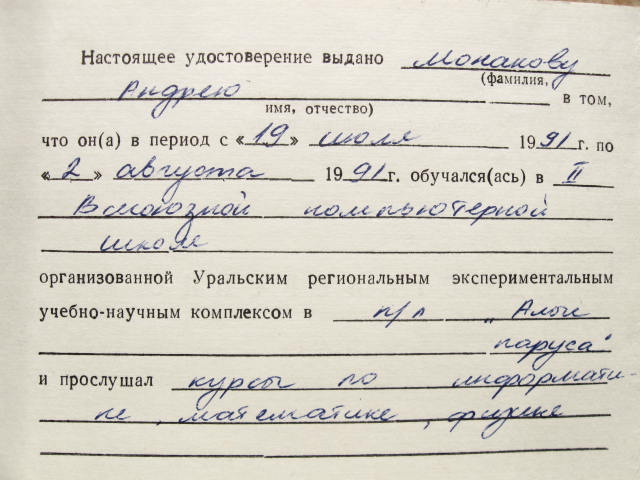 Настоящее удостоверение выдано Мопанову
(фамилия,
Андрею в том,
имя, отчество)
что он(а) в период с «19» июля 1991 г. по
«2» августа 1991 г. обучался(ась) в II
Всесоюзной компьютерной
школе
организованной Уральским региональным экспериментальным
учебно-научным комплексом в п/л „Алые
паруса"
и прослушал курсы по информати-
ке, математике, физике